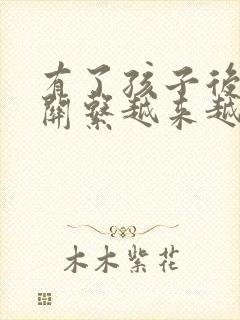 有了孩子後
關繫越来越
木木紫花